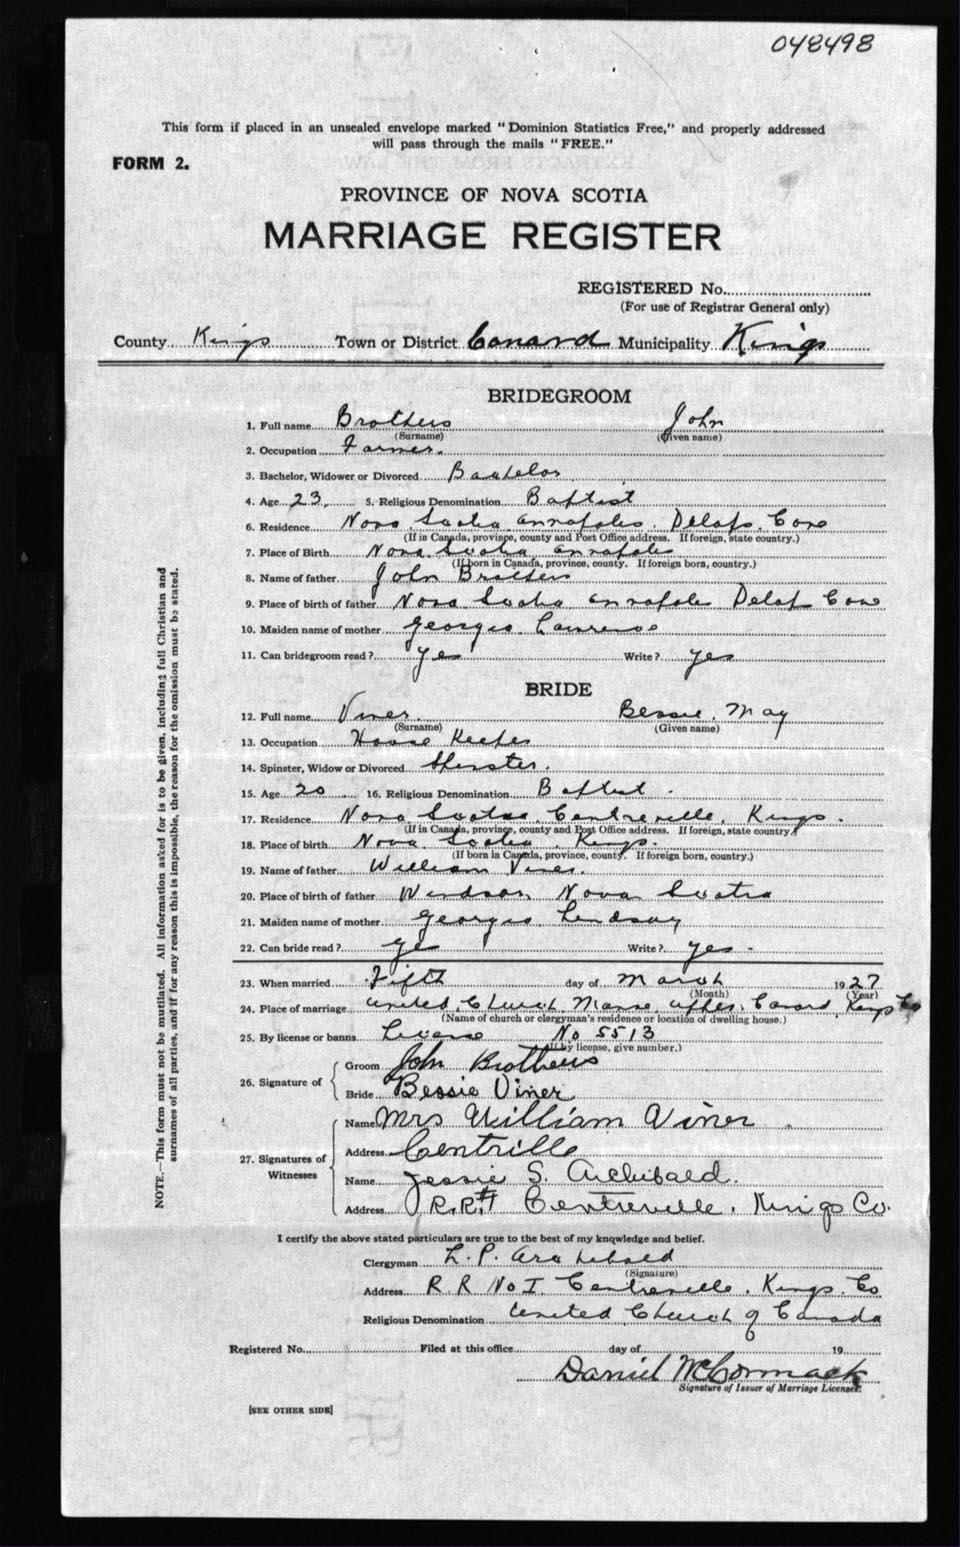 048498
This form if placed in an unsealed envelope marked "Dominion Statistics Free," and properly addressed
will pass through the mails "FREE."
FORM 2.
PROVINCE OF NOVA SCOTIA
MARRIAGE REGISTER
REGISTERED No.
(For use of Registrar General only)
County Kings Town or District Canard Municipality Kings
BRIDEGROOM
1. Full name Brothers John
(Surname) (Given name)
2. Occupation Farmer.
3. Bachelor, Widower or Divorced Bachelor
4. Age 23. 5. Religious Denomination Baptist
6. Residence Nova Scotia Annapolis. Delaps Cove
(If in Canada, province, county and Post Office address. If foreign, state country.)
7. Place of Birth Nova Scotia Annapolis
(If born in Canada, province, county. If foreign born, country.)
8. Name of father John Brothers
9. Place of birth of father Nova Scotia Annapolis Delap Cove
10. Maiden name of mother Georgia Lawrence
11. Can bridegroom read? yes Write? yes
BRIDE
12. Full name Viner. Bessie. May
(Surname) (Given name)
13. Occupation House Keeper
14. Spinster, Widow or Divorced Spinster.
15. Age 20 16. Religious Denomination Baptist.
17. Residence Nova Scotia Centreville, Kings.
(If in Canada, province, county and Post Office address. If foreign, state country.)
18. Place of birth Nova Scotia, Kings.
(If born in Canada, province, county. If foreign born, country.)
19. Name of father William Viner.
20. Place of birth of father Windsor, Nova Scotia
21. Maiden name of mother Georgia Lindsay
22. Can bride read? ye Write? yes -
23. When married Fifth day of March 1927
(Month) (Year)
24. Place of marriage United Church Manse, Upper Canard, Kings Co
(Name of church or clergyman's residence or location of dwelling house.)
25. By license or banns License No 5513
(If by license, give number.)
26. Signature of
Groom John Brothers
Bride Bessie Viner
27. Signatures of Witnesses
Name Mrs William Viner
Address Centrille
Name Jessie S. Archibald.
Address R.R.#1 Centreville, Kings Co.
I certify the above stated particulars are true to the best of my knowledge and belief.
Clergyman L. P. Archibald
(Signature)
Address R. R No I. Centreville, Kings Co
Religious Denomination United Church of Canada
Registered No. Filed at this office day of 19
Daniel McCormack
Signature of Issuer of Marriage Licenses.
[SEE OTHER SIDE]
NOTE.—This form must not be mutilated. All information asked for is to be given, including full Christian and
surnames of all parties, and if for any reason this is impossible, the reason for the omission must be stated.